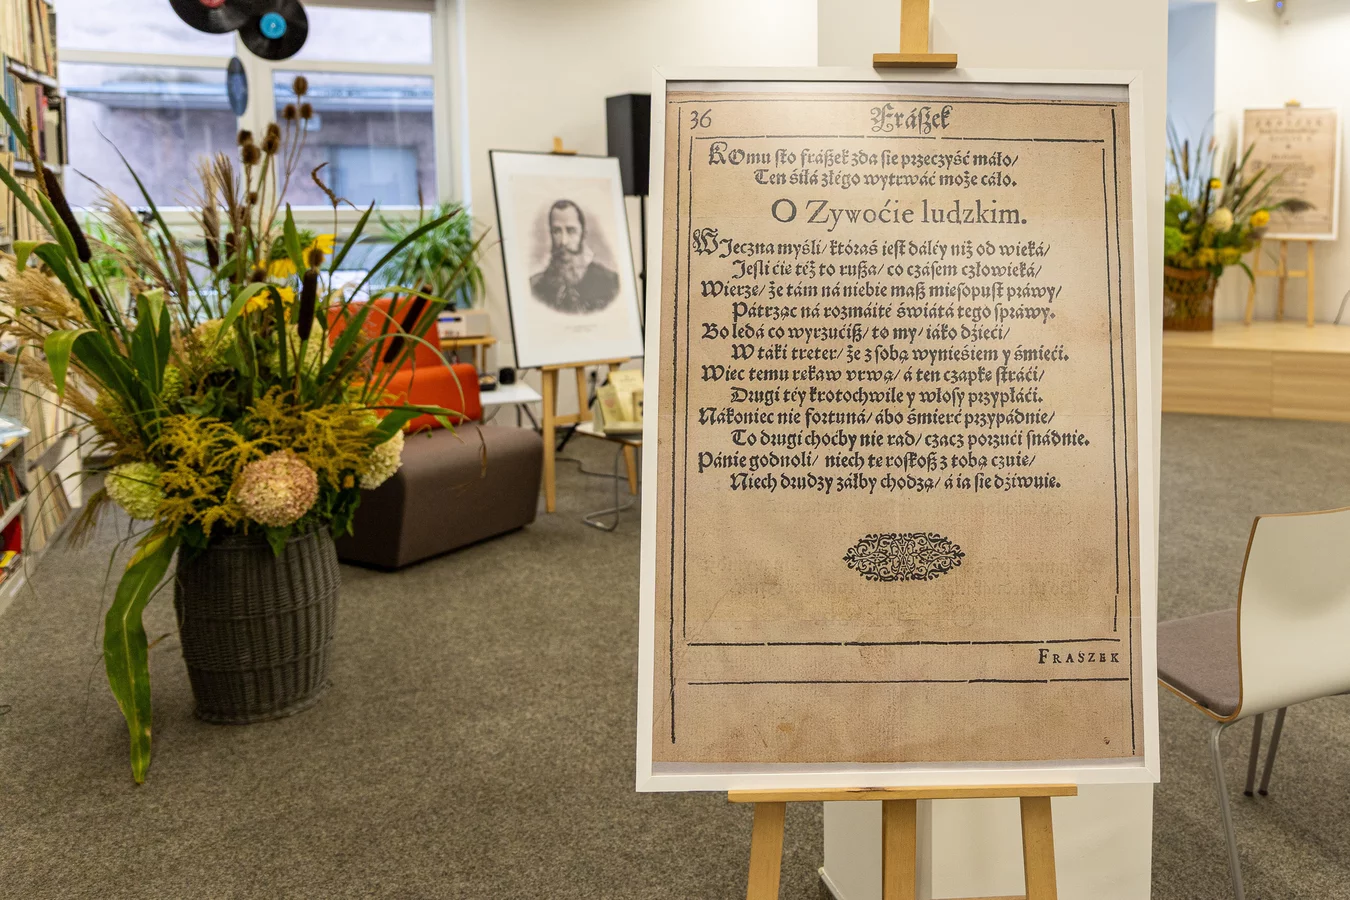 36 Fráſzek
KOmu ſto fráſzek zda ſie przeczyść máło/
Ten śiłá złégo wytrwáć może cáło.
O Zywoćie ludzkim.
WJeczna myśli/ któraś ieſt dáléy niż od wieká/
Jeſli ćie też to ruſza/ co czáſem człowieká/
Wierze/ że tám ná niebie maſz mieſopuſt práwy/
Pátrząc ná rozmáité świátá tego ſpráwy.
Bo ledá co wyrzućiſz/ to my/ iáko dźieći/
W táki treter/ że z ſobą wynieśiem y śmieći.
Wiec temu rękaw vrwą/ á ten czapkę ſtráći/
Drugi téy krotochwile y włoſy przypłáći.
Nákoniec nie fortuná/ ábo śmierć przypádnie/
To drugi choćby nie rad/ czacz porzući ſnádnie.
Pánie godnoli/ niech tę roſkoſz z tobą czuię/
Niech drudzy záłby chodzą/ á ia ſie dźiwuię.
FRASZEK